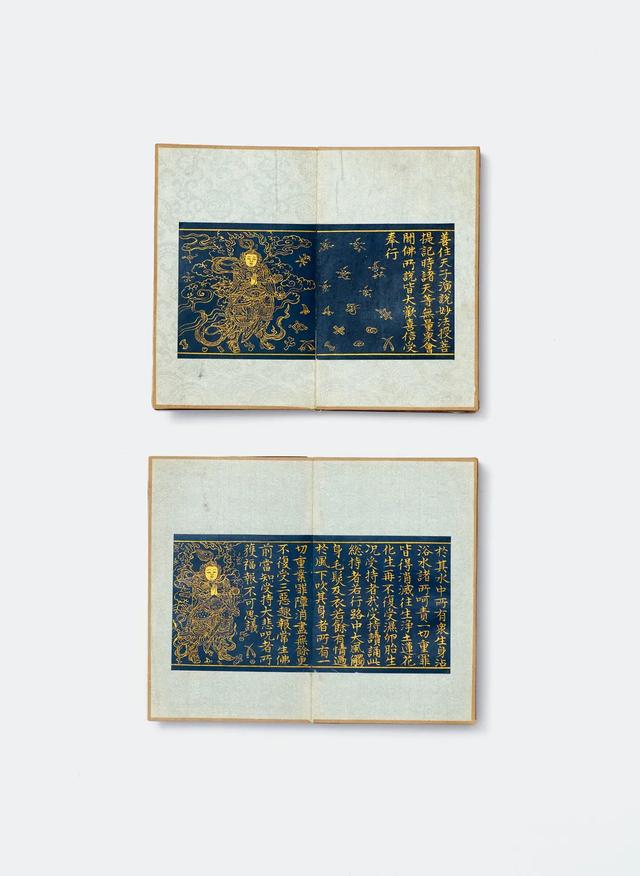 善住天子演說妙法授菩
提記時諸天等無量衆會
聞佛所說皆大歡喜信受
奉行
於其水中所有衆生身沾
浴水諸所呵責一切重罪
皆得消滅往生淨土蓮花
化生再不復受濕卵胎生
况受持者哉受持讀誦此
總持者若行路中大風觸
身毛髮及衣若餘有情遇
於風下吹其身者所有一
切重業罪障消盡無餘更
不復受三惡趣報常生佛
前當知受持大悲呪者所
獲福報不可思議